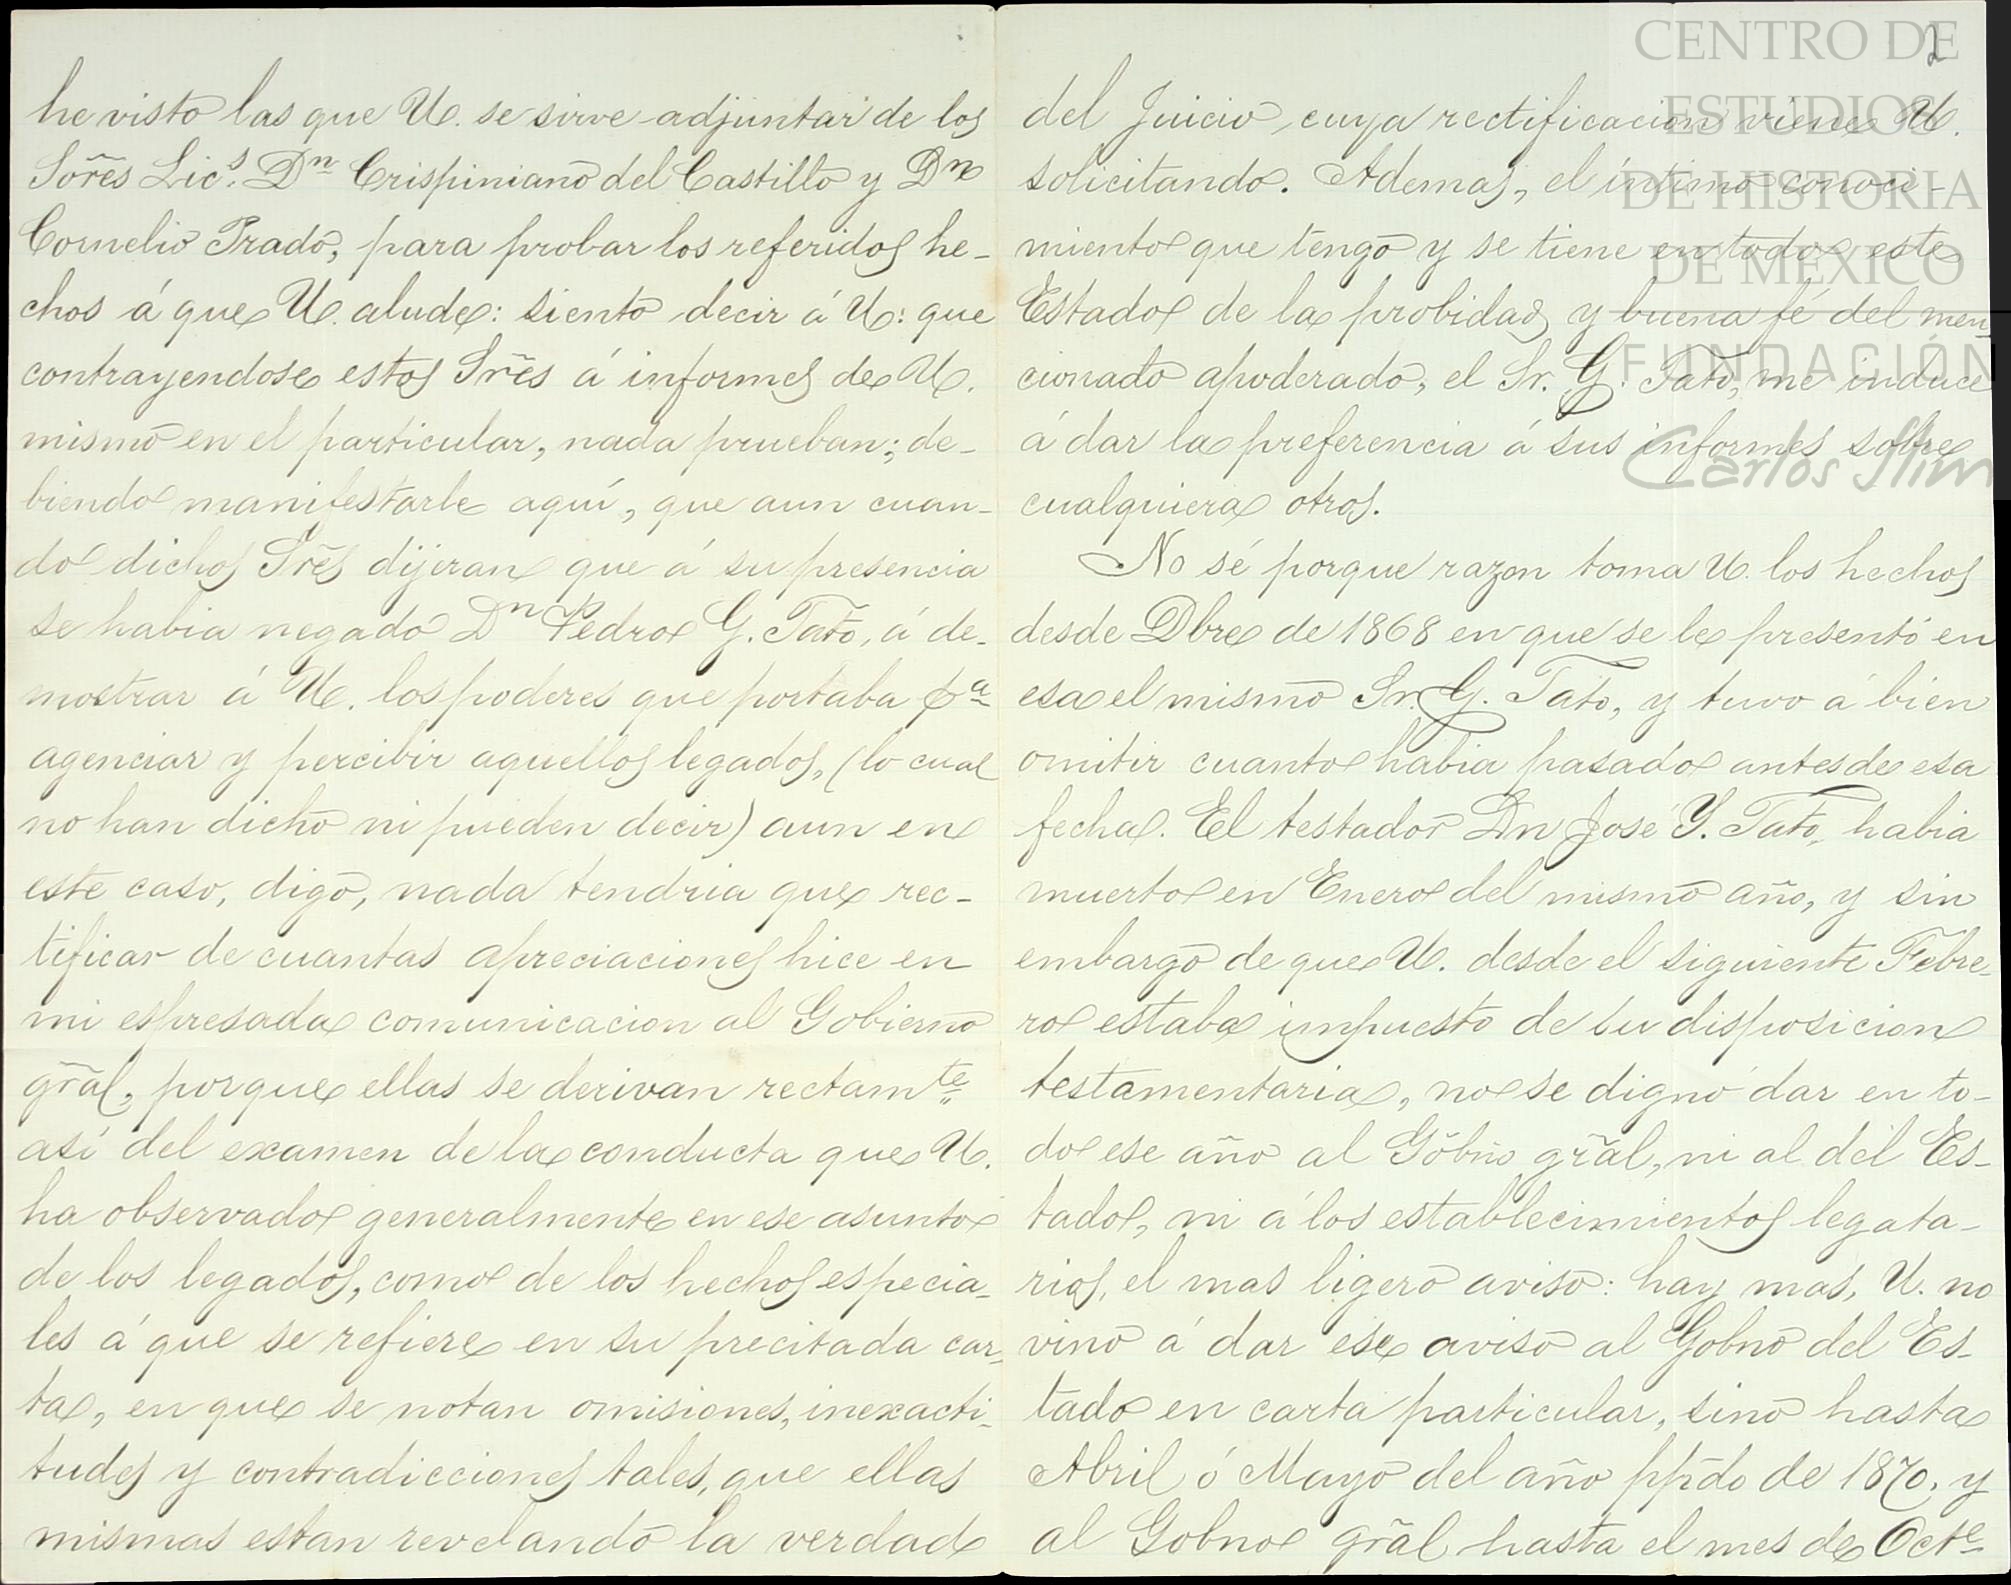 he visto las que U. se sirve adjuntar de los
Sor̃es Lic.s Dn Crispiniano del Castillo y Dn
Cornelio Prado, para probar los referidos he-
chos á que U. alude: siento decir á U: que
contrayendose estos Sr̃es á informes de U.
mismo en el particular, nada prueban; de-
biendo manifestarle aquí, que aun cuan-
do dichos Sr̃es dijeran que á su presencia
se habia negado Dn Pedro G. Tato, á de-
mostrar á U. los poderes que portaba pa
agenciar y percibir aquellos legados, (lo cual
no han dicho ni pueden decir) aun en
este caso, digo, nada tendria que rec-
tificar de cuantas apreciaciones hice en
mi espresada comunicacion al Gobierno
gr̃al, porque ellas se derivan rectamte
así del examen de la conducta que U.
ha observado generalmente en ese asunto
de los legados, como de los hechos especia-
les á que se refiere en su precitada car-
ta, en que se notan omisiones, inexacti-
tudes y contradicciones tales, que ellas
mismas estan revelando la verdad
2
del Juicio, cuya rectificacion viene U.
solicitando. Ademas, el íntimo conoci-
miento que tengo y se tiene en todo este
Estado de la probidad y buena fé del men-
cionado apoderado, el Sr. G. Tato, me induce
á dar la preferencia á sus informes sobre
cualquiera otros.
No sé porque razon toma U. los hechos
desde Dbre de 1868 en que se le presentó en
esa el mismo Sr. G. Tato, y tuvo á bien
omitir cuanto habia pasado antes de esa
fecha. El testador Dn José Y. Tato, habia
muerto en Enero del mismo año, y sin
embargo de que U. desde el siguiente Febre-
ro estaba impuesto de su disposicion
testamentaria, no se dignó dar en to-
do ese año al Gõbno gr̃al, ni al del Es-
tado, ni á los establecimientos legata-
rios, el mas ligero aviso: hay mas, U. no
vino á dar ese aviso al Gobno del Es-
tado en carta particular, sino hasta
Abril ó Mayo del año pp̃do de 1870, y
al Gobno gr̃al hasta el mes de Octe
CENTRO DE
ESTUDIOS
DE HISTORIA
DE MEXICO
FUNDACIÓN
Carlos Slim